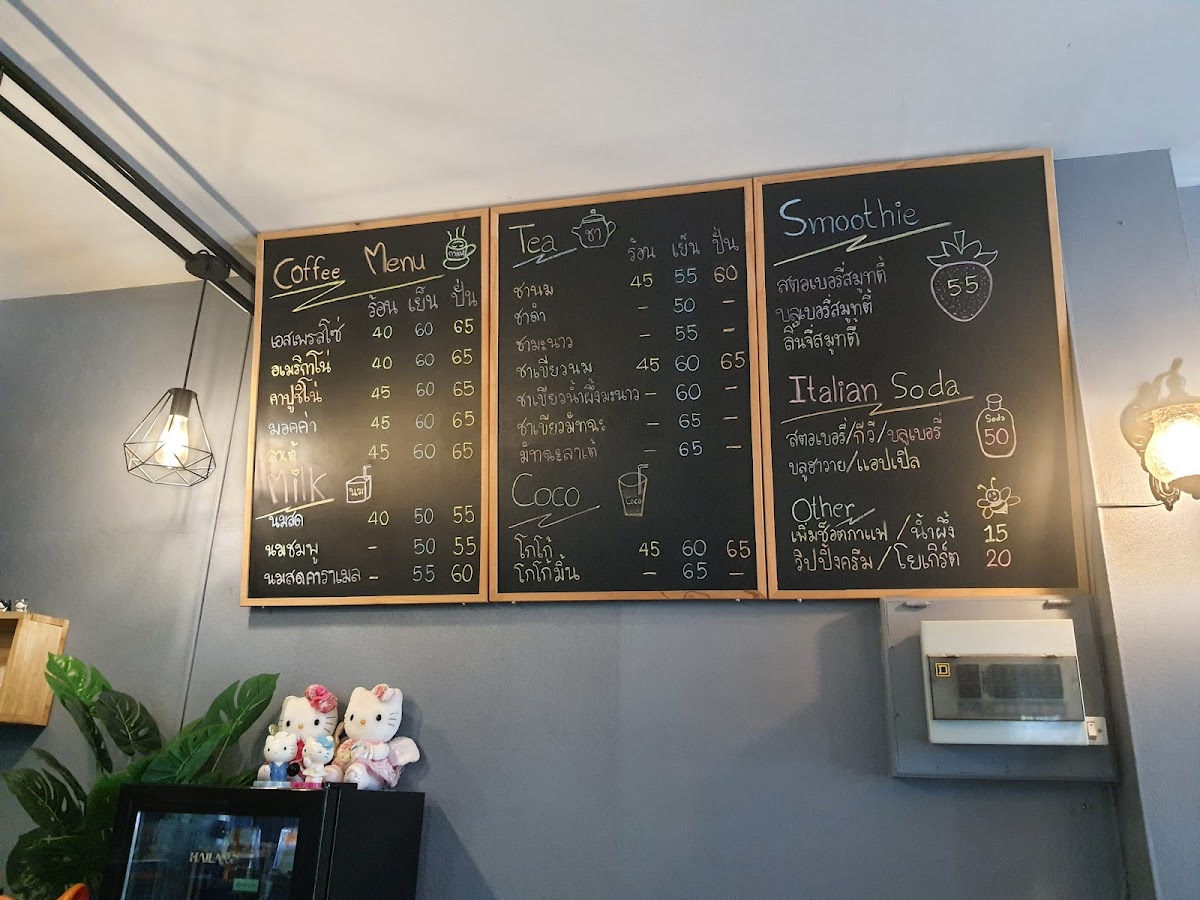 Coffee Menu
กาแฟ
ร้อน เย็น ปั่น
เอสเพรสโซ่ 40 60 65
อเมริกาโน่ 40 60 65
คาปูชิโน่ 45 60 65
มอคค่า 45 60 65
ลาเต้ 45 60 65
Milk
นม
นมสด 40 50 55
นมชมพู - 50 55
นมสดคาราเมล - 55 60
Tea
ชา
ร้อน เย็น ปั่น
ชานม 45 55 60
ชาดำ - 50 -
ชามะนาว - 55 -
ชาเขียวนม 45 60 65
ชาเขียวน้ำผึ้งมะนาว - 60 -
ชาเขียวมัทฉะ - 65 -
มัทฉะลาเต้ - 65 -
Coco
COCO
โกโก้ 45 60 65
โกโก้มิ้น - 65 -
Smoothie
สตอเบอรี่สมูทตี้
55
บลูเบอรี่สมูทตี้
ลิ้นจี่สมูทตี้
Italian Soda
Soda
50
สตอเบอรี่/กีวี/บลูเบอรี่
บลูฮาวาย/แอปเปิ้ล
Other
เพิ่มช็อตกาแฟ / น้ำผึ้ง 15
วิปปิ้งครีม / โยเกิร์ต 20